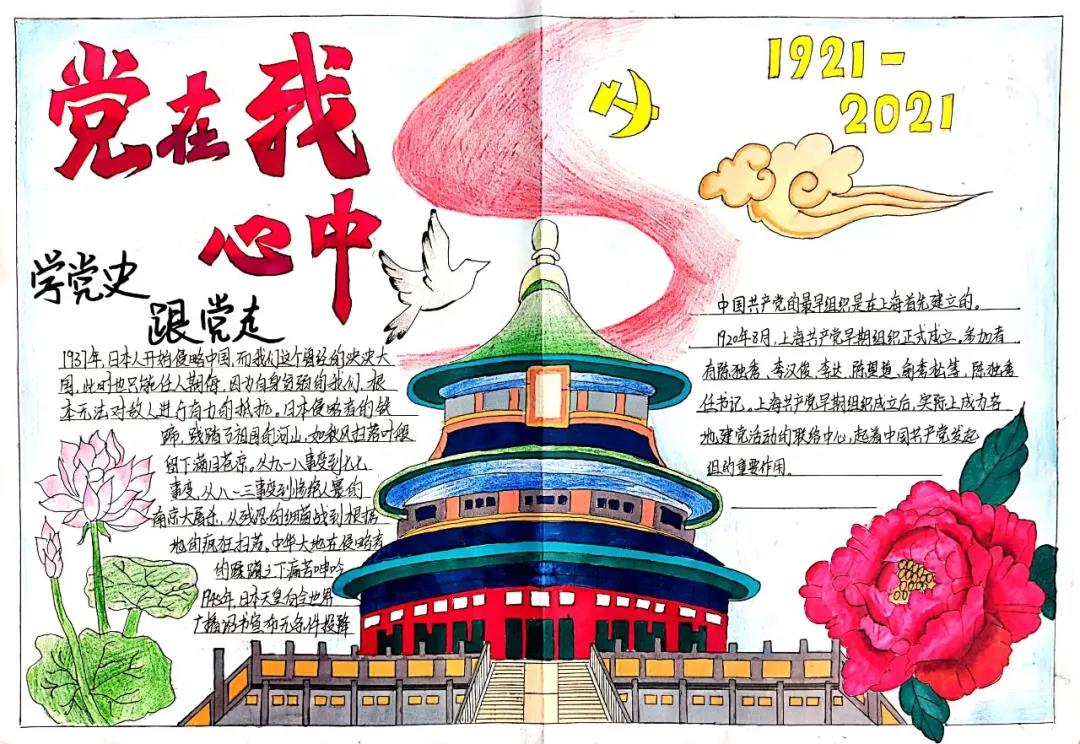 党在我
心中
1921-
2021
学党史
跟党走
1931年,日本人开始侵略中国,而我们这个曾经的泱泱大
国,此时也只能任人欺侮,因为自身贫弱的我们,根
本无法对敌人进行有力的抵抗。日本侵略者的铁
蹄,践踏了祖国的河山,如秋风扫落叶般
留下满目苍凉。从九一八事变到七七
事变,从八一三事变到惨绝人寰的
南京大屠杀,从残忍的细菌战到根据
地的疯狂扫荡。中华大地在侵略者
的蹂躏之下痛苦呻吟
1945年,日本天皇向全世界
广播诏书宣布无条件投降
中国共产党的最早组织是在上海首先建立的。
1920年8月,上海共产党早期组织正式成立。参加者
有陈独秀、李汉俊、李达、陈望道、俞秀松等,陈独秀
任书记。上海共产党早期组织成立后,实际上成为各
地建党活动的联络中心,起着中国共产党发起
组的重要作用。